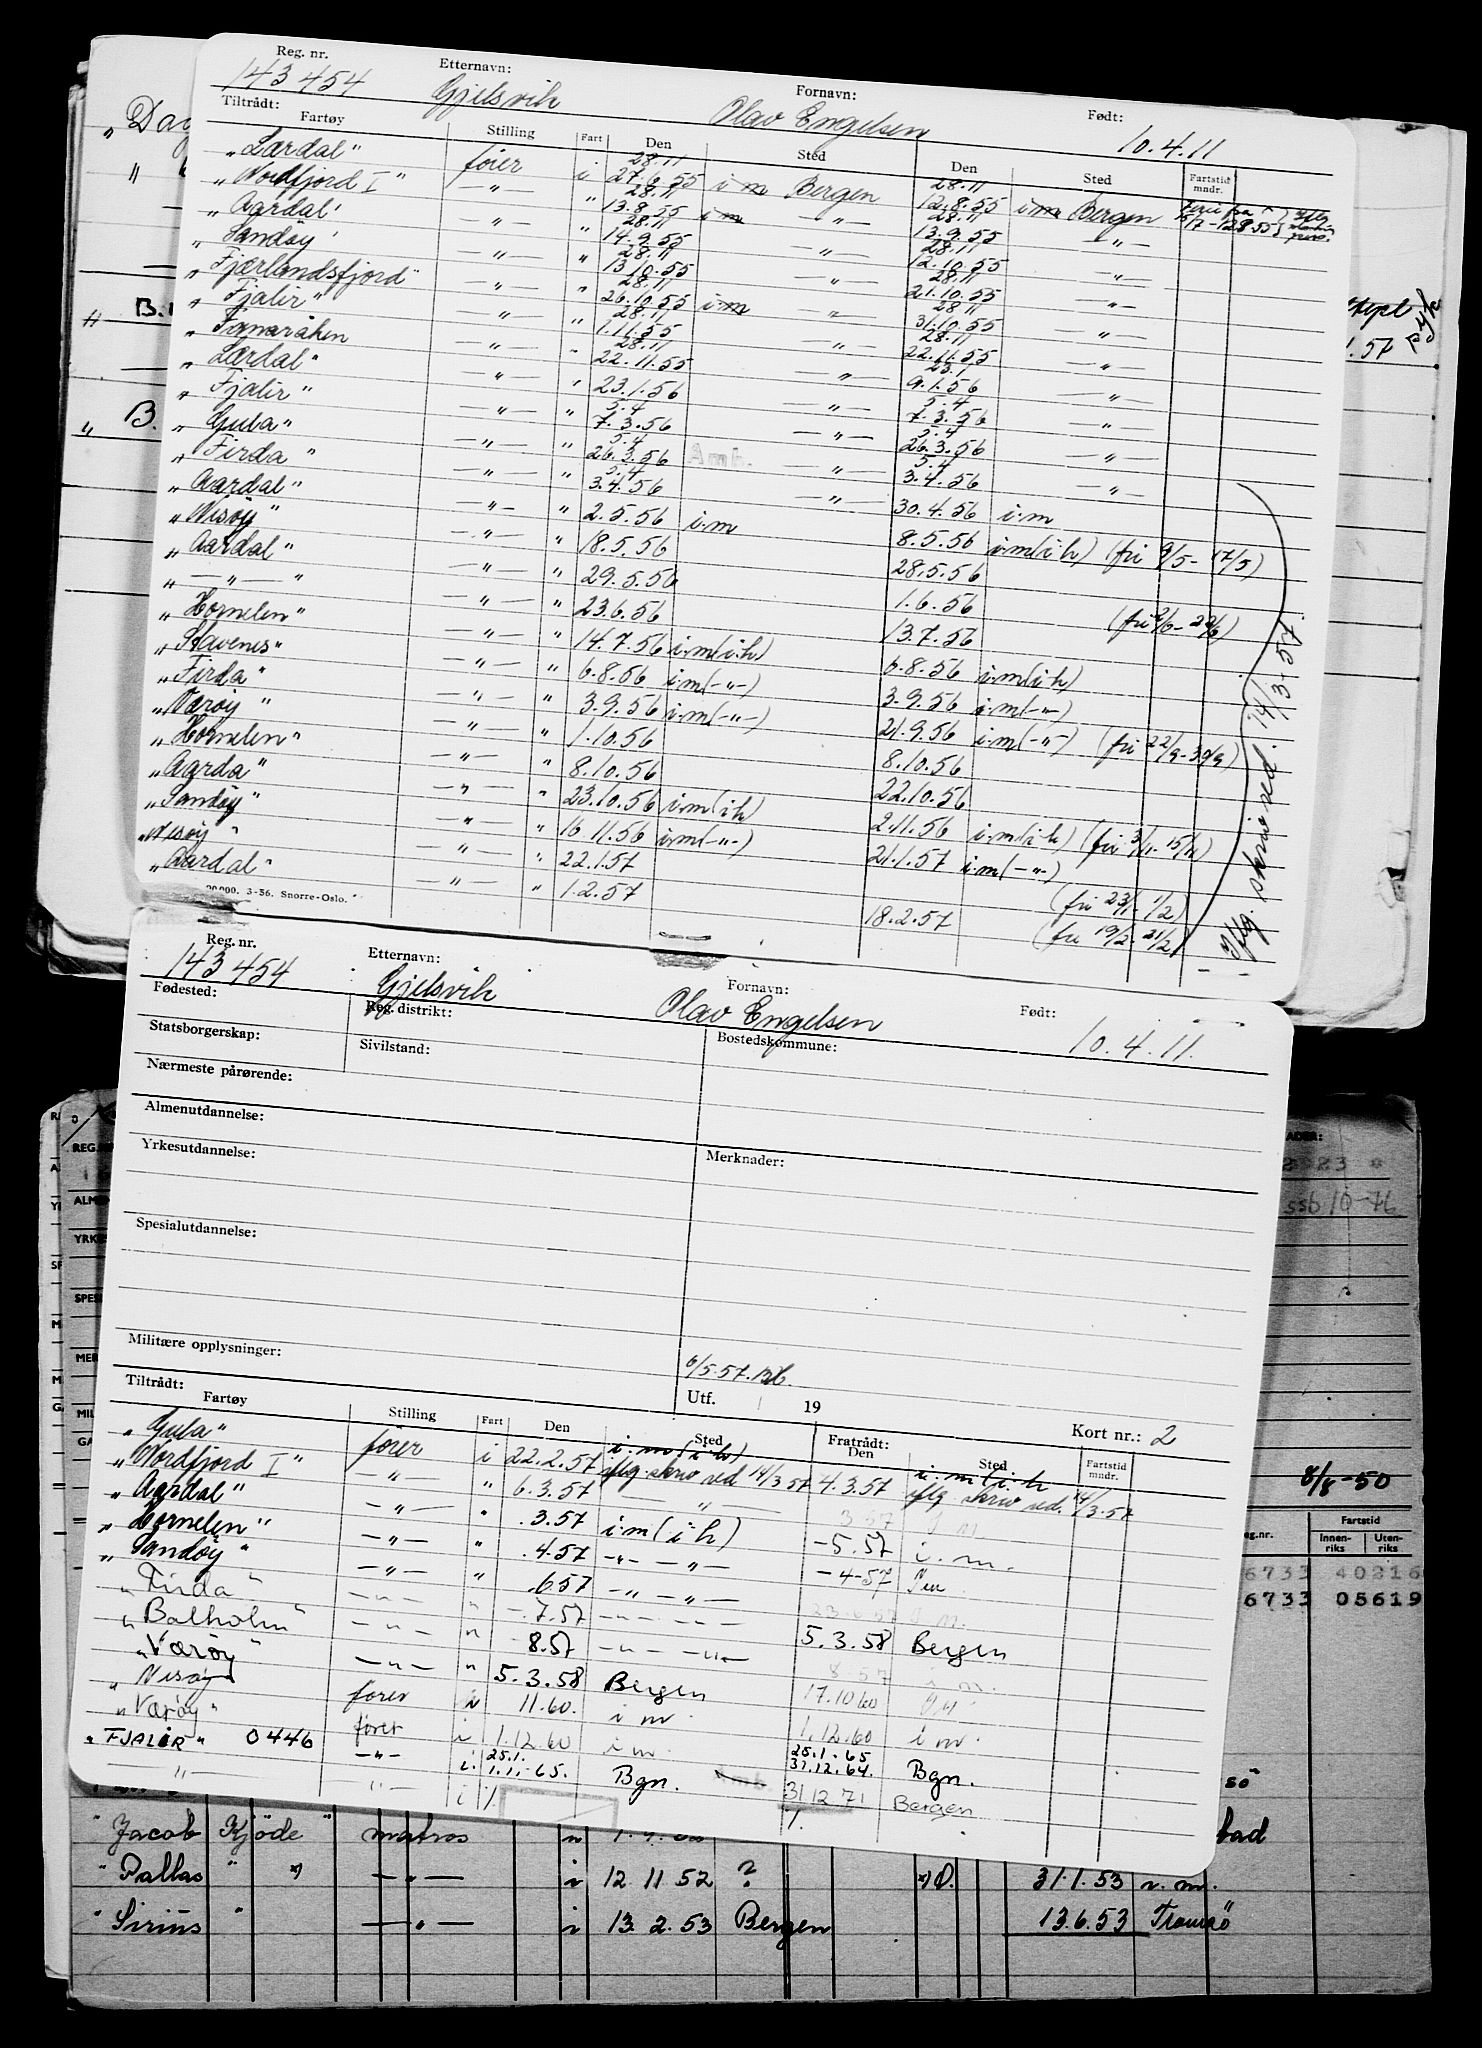 Reg. nr. Etternavn: Fornavn: Født:
143 454 Gjelsvik Olav Engelsen 10.4.11
Tiltrådt:
Fartøy Stilling Fart Den Sted Den Sted Fartstid mndr.
„Lærdal" fører i 28.11 27.6.55 i m Bergen 28.11 12.8.55 i m Bergen
„Nordfjord I" —"— " 28.11 13.8.55 i m —"— 28.11 13.9.55 —"—
„Aardal" —"— " 28.11 14.9.55 —"— 28.11 12.10.55 —"—
„Sandøy" —"— " 28.11 13.10.55 —"— 28.11 21.10.55 —"—
„Fjærlandsfjord" —"— " 28.11 26.10.55 i m —"— 28.11 31.10.55 —"—
„Fjalir" —"— " 28.11 1.11.55 28.11 22.11.55 —"—
„Fanaråken —"— " 28.11 22.11.55 —"— 23.1 9.1.56 —"—
„Lærdal" —"— " 23.1.56 —"— 5.4 7.3.56 —"—
„Fjalir" —"— " 5.4 7.3.56 —"— 5.4 26.3.56 —"—
„Gula" —"— " 5.4 26.3.56 Amk. —"— 5.4 3.4.56 —"—
„Firda" —"— " 5.4 3.4.56 —"— 30.4.56 i.m
„Aardal" —"— " 2.5.56 i.m 8.5.56 i.m(i.h) (fri 9/5 - 17/5)
„Nisøy" —"— " 18.5.56 28.5.56
„Aardal" —"— " 29.5.56 1.6.56 (fri 2/6 - 22/6)
„—"—" —"— " 23.6.56 13.7.56
„Hornelen" —"— " 14.7.56 i.m(i.h) 6.8.56 i.m(i.h)
„Stavenes" —"— " 6.8.56 i.m(-"-) 3.9.56 i.m(-"-)
„Firda" —"— " 3.9.56 i.m(-"-) 21.9.56 i.m(-"-) (fri 22/9-30/9)
„Værøy" —"— " 1.10.56 8.10.56
„Hornelen" —"— " 8.10.56 22.10.56
„Aarda" —"— " 23.10.56 i.m(i.h) 2.11.56 i.m(i.h) (fri 3/11-15/11)
„Sandøy" —"— " 16.11.56 i.m(-"-) 21.1.57 i.m(-"-)
„Nisøy" —"— " 22.1.57 (fri 23/1-1/2)
„Aardal" —"— " 1.2.57 18.2.57 (fri 19/2-21/2)
iflg. skriv ved. 14/3-57.
20.000. 3-56. Snorre-Oslo.
„Dag
„ B.
„ B.
.57
Reg. nr. Etternavn: Fornavn: Født:
143 454 Gjelsvik Olav Engelsen 10.4.11.
Fødested: Reg. distrikt: Bostedskommune:
Statsborgerskap: Sivilstand:
Nærmeste pårørende:
Almenutdannelse:
Yrkesutdannelse: Merknader:
Spesialutdannelse:
Militære opplysninger:
6/5.57.
Utf. 19
Tiltrådt: Fratrådt: Kort nr.: 2
Fartøy Stilling Fart Den Sted Den Sted Fartstid mndr.
„Gula" fører i 22.2.57 i.m(i.h) iflg. skriv ved 14/3 57 4.3.57 i.m(i.h iflg. skriv ved. 14/3.57
„Nordfjord I" —"— " 6.3.57 —"— 3 57 i m
„Aardal" —"— " .3.57 i.m(i.h) -5.57 i.m.
„Hornelen" —"— " .4.57 -"- —"— -4-57 i m
„Sandøy" —"— " .6.57 -"- —"— 23.6.57 i m.
„Firda" —"— " -.7.57 —"— 5.3.58 Bergen
„Balholm" —"— " 8.57 —"— 8 57 i m.
„Værøy" —"— " 5.3.58 Bergen 17.10.60 i m
„Nisøy" fører i 11.60. i m. 1.12.60 i m.
„Værøy" fører i 1.12.60 i m. 25.1.65 31.12.64. Bgn.
„FJALIR" 0446 —"— i. 25.1. 1.1.-65. Bgn. Amk. 31 12 71 Bergen
—"— " i
REG.
ALM
YRKES
SPES
MER
MIL
GA
ADER:
ssb 10-76
8/8-50
eg.nr. Fartstid
Innenriks Utenriks
6733 40216
6733 05619
sø
"Jacob Kjöde" matros n tad
"Pallas" *) —"— i 12.11.52 ? *) 31.1.53 i.m.
"Sirius" —"— i 13.2.53 Bergen 13.6.53 Tromsö